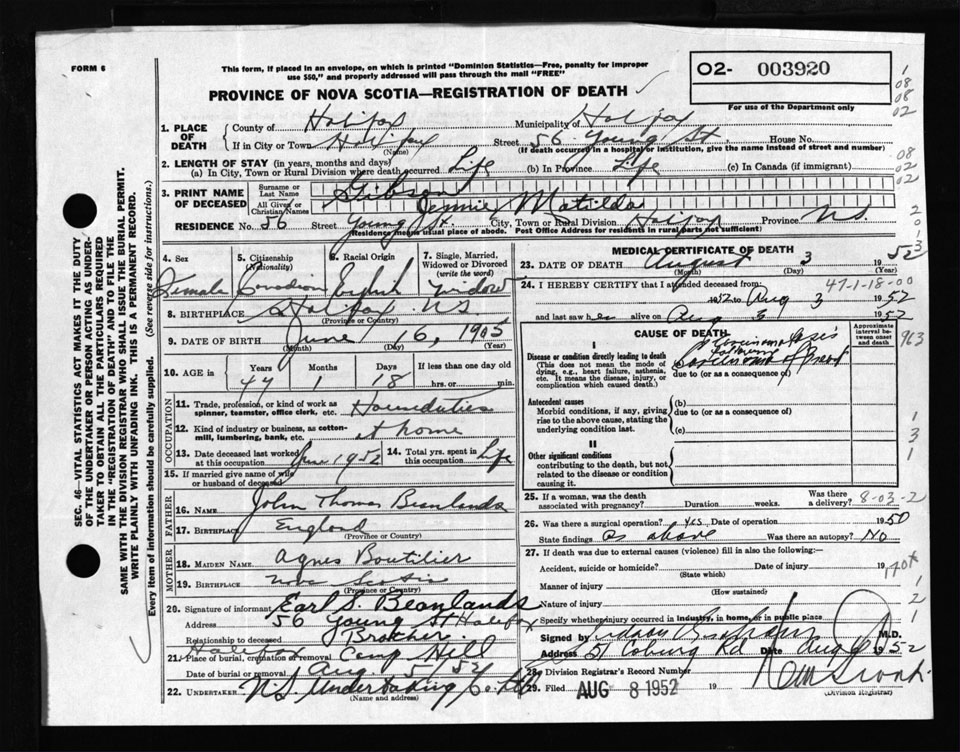 FORM 6
This form, if placed in an envelope, on which is printed "Dominion Statistics—Free, penalty for improper
use $50," and properly addressed will pass through the mail "FREE"
O2- 003920
PROVINCE OF NOVA SCOTIA—REGISTRATION OF DEATH
For use of the Department only
1. PLACE OF DEATH
County of Halifax Municipality of Halifax
If in City or Town Halifax Street 56 Young St. House No.
(Name) (If death occurred in a hospital or institution, give the name instead of street and number)
2. LENGTH OF STAY (in years, months and days)
(a) In City, Town or Rural Division where death occurred Life (b) In Province Life (c) In Canada (if immigrant)
3. PRINT NAME OF DECEASED
Surname or Last Name
All Given or Christian Names Jennie Matilda
RESIDENCE No. 56 Street Young St. City, Town or Rural Division Halifax Province N.S.
Residence means usual place of abode. Post Office Address for residents in rural parts not sufficient)
SEC. 46—VITAL STATISTICS ACT MAKES IT THE DUTY
OF THE UNDERTAKER OR PERSON ACTING AS UNDER-
TAKER TO OBTAIN ALL THE PARTICULARS REQUIRED
IN THE "REGISTRATION OF DEATH" AND TO FILE THE
SAME WITH THE DIVISION REGISTRAR WHO SHALL ISSUE THE BURIAL PERMIT.
WRITE PLAINLY WITH UNFADING INK. THIS IS A PERMANENT RECORD.
Every item of information should be carefully supplied. (See reverse side for instructions.)
4. Sex Female
5. Citizenship (Nationality) Canadian
6. Racial Origin English
7. Single, Married, Widowed or Divorced (write the word) Widow
8. BIRTHPLACE Halifax N.S.
(Province or Country)
9. DATE OF BIRTH June 16, 1905
(Month) (Day) (Year)
10. AGE in Years 47 Months 1 Days 18 If less than one day old hrs. or min.
OCCUPATION
11. Trade, profession, or kind of work as spinner, teamster, office clerk, etc. Houseduties
12. Kind of industry or business, as cotton-mill, lumbering, bank, etc. at home
13. Date deceased last worked at this occupation June 1952
14. Total yrs. spent in this occupation Life
15. If married give name of wife or husband of deceased
FATHER
16. NAME John Thomas Beanlands
17. BIRTHPLACE England
(Province or Country)
MOTHER
18. MAIDEN NAME Agnes Boutilier
19. BIRTHPLACE Nova Scotia
(Province or Country)
20. Signature of informant Earl S. Beanlands
Address 56 Young St Halifax
Relationship to deceased Brother
21. Place of burial, cremation or removal Halifax Camp Hill
Date of burial or removal Aug. 5, 52
22. UNDERTAKER N.S. Undertaking Co. Ltd
(Name and address)
MEDICAL CERTIFICATE OF DEATH
23. DATE OF DEATH August 3 1952
(Month) (Day) (Year)
24. I HEREBY CERTIFY that I attended deceased from
1952 Aug 3 1952
and last saw her alive on Aug 3 1952
47-1-18-00
CAUSE OF DEATH
Approximate interval between onset and death
I
Disease or condition directly leading to death
(This does not mean the mode of dying, e.g., heart failure, asthenia, etc. It means the disease, injury, or complication which caused death.)
Carcinomatosis
Carcinoma of Breast
due to (or as a consequence of)
Antecedent causes
Morbid conditions, if any, giving rise to the above cause, stating the underlying condition last.
(b)
due to (or as a consequence of)
(c)
II
Other significant conditions
contributing to the death, but not related to the disease or condition causing it.
25. If a woman, was the death associated with pregnancy? Duration weeks. Was there a delivery? 8-03-2
26. Was there a surgical operation? yes Date of operation 1950
State findings as above Was there an autopsy? No
27. If death was due to external causes (violence) fill in also the following:—
Accident, suicide or homicide? Date of injury 19
(State which)
Manner of injury
(How sustained)
Nature of injury
Specify whether injury occurred in industry, in home, or in public place
Signed by M.D.
Address 51 Coburg Rd Date Aug 6 1952
28. Division Registrar's Record Number
29. Filed AUG 8 1952 19
(Division Registrar)